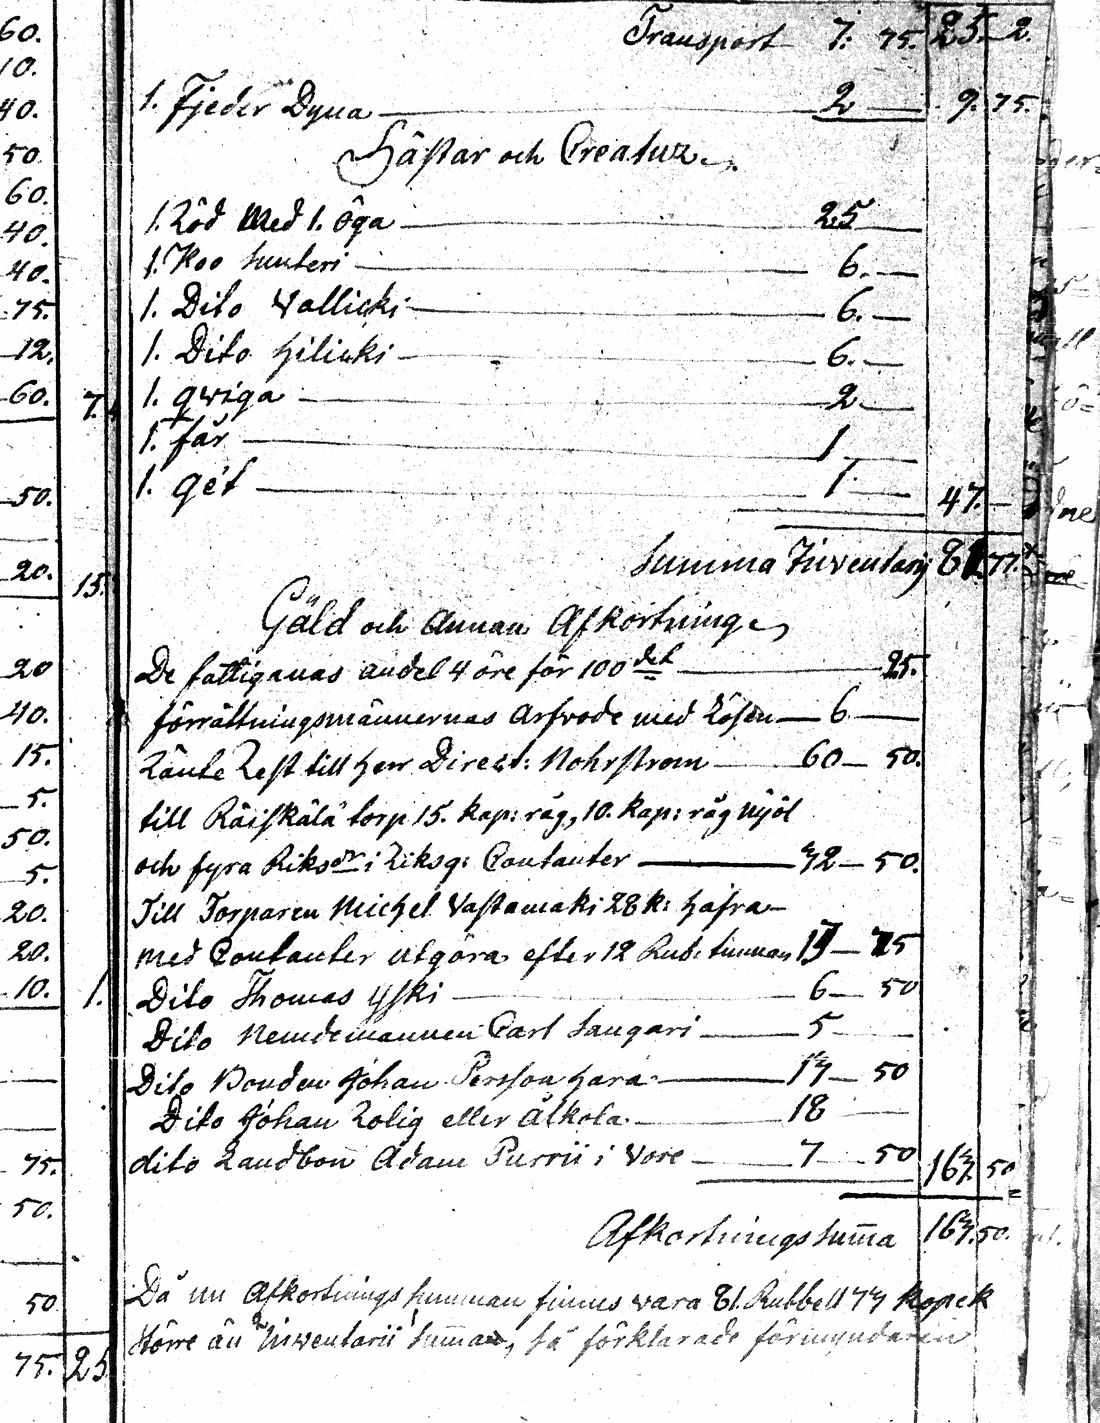 Transport 7: 75. 25. 2.
1. Fjeder Dyna 2 9. 75.
Hästar och Creatur
1. Röd Med 1. Öga 25
1. Koo Lunteri 6.
1. Dito Vallicki 6.
1. Dito Hilicki 6.
1. qwiga 2
1. får 1
1. get 1 47.
Summa Inventarij 81 77.
Gäld och Annan Afkortning
De fattigas andel 4 öre för 100 det 25.
förrättningsmännernas Arfvode med Lösen 6
Ränte Rest till Herr Direct: Nohrstrom 60 50.
till Räiskälä torp 15. kap: råg, 10. kap: råg mjöl
och fyra Riksdr i Riksg: Contanter 72 50.
Till Torparen Michel Vastamaki 28 k: hafra
med Contanter utgöra efter 12 Rub: tunnan 17 75
Dito Thomas Yski 6 50
Dito Nemdemannen Carl Saugari 5
Dito Bonden Johan Persson Hara 17 50
Dito Johan Rolig eller Alkola 18
dito Landbon Adam Purrii i Vore 7 50 167. 50
Afkortnings Summa 167. 50.
Då nu Afkortnings Summan finnes vara 81. Rubbel 77 kopek
större än Inventarii Summan, så förklarade förmyndaren
60.
10.
40.
50
60.
40.
40.
75.
12.
60. 7.
50.
20. 15.
20
40.
15.
5.
50.
5.
20.
20.
10. 1.
75.
50.
50
75. 25